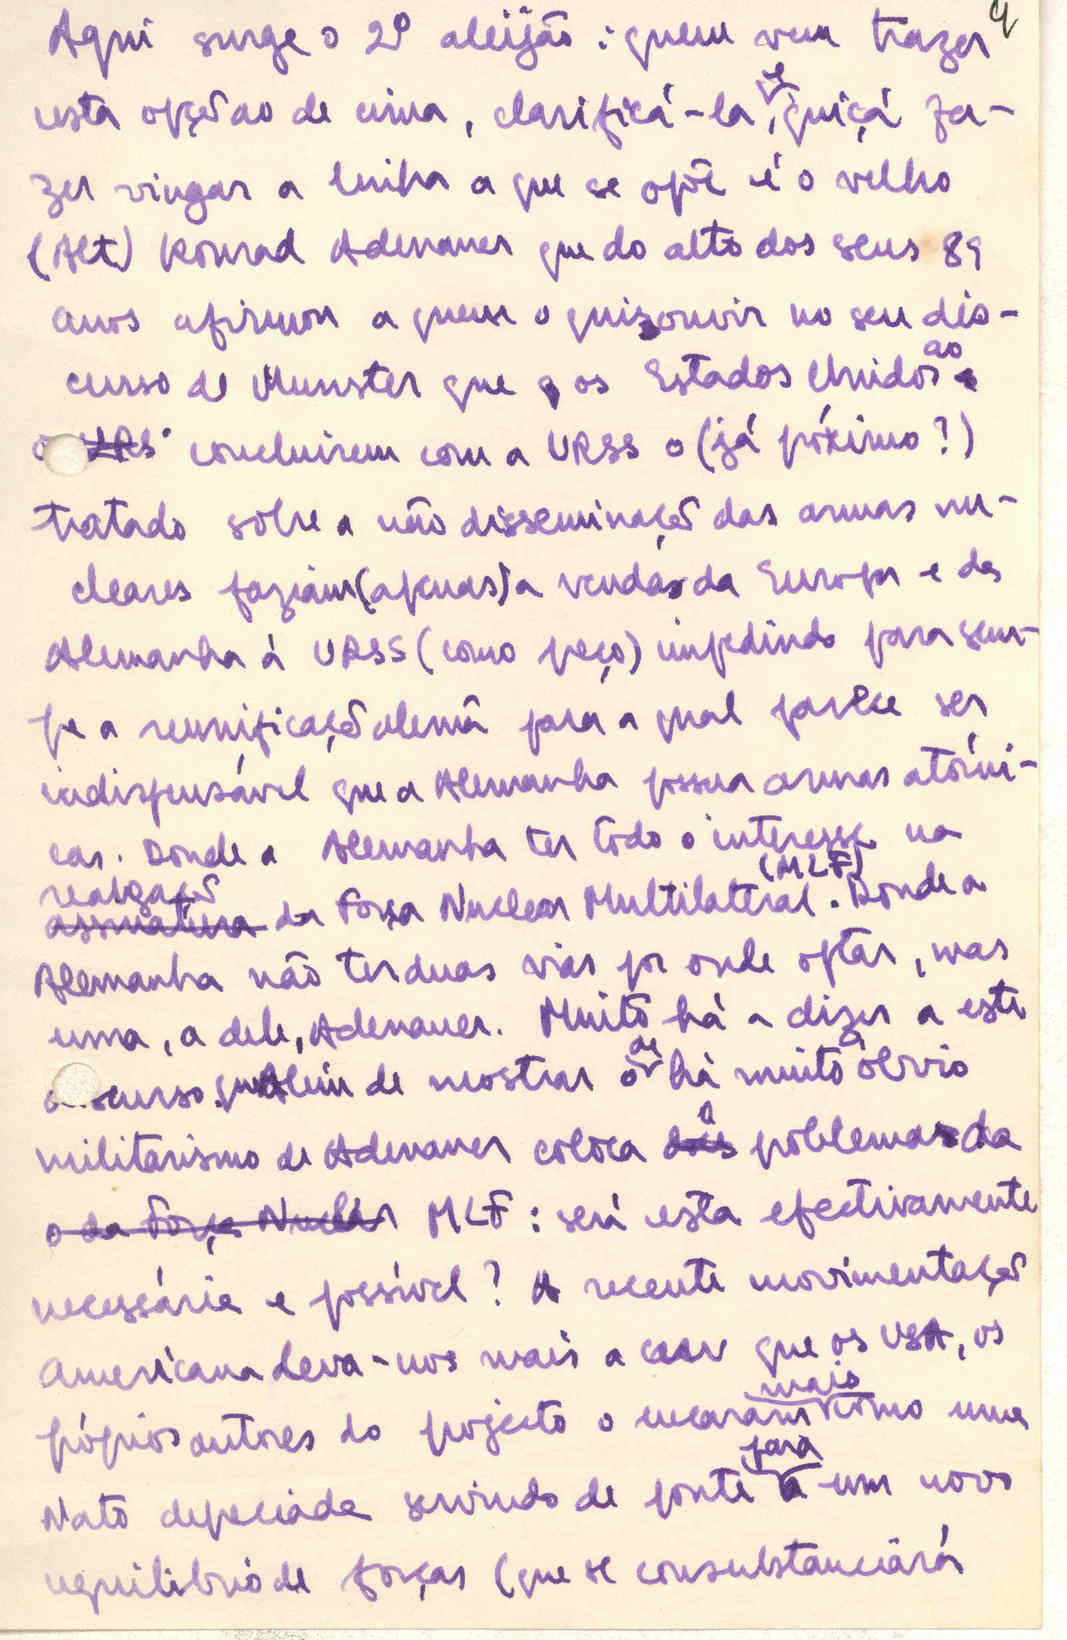 4
Aqui surge o 2º aleijão: quem vem trazer
esta opção ao de cima, clarificá-la, e quiçá fa-
zer vingar a linha a que se opõe é o velho
(Alt) Konrad Adenauer que do alto dos seus 89
anos afirmou a quem o quis ouvir no seu dis-
curso de Munster que os Estados Unidos ao
concluirem com a URSS o (já próximo?)
tratado sobre a não disseminação das armas nu-
cleares faziam (apenas) a venda da Europa e da
Alemanha à URSS (como peço) impedindo para sem-
pre a reunificação alemã para a qual parece ser
indispensável que a Alemanha possua armas atómi-
cas. Donde a Alemanha ter todo o interesse na
realização assinatura da Força Nuclear Multilateral (MLF). Donde a
Alemanha não ter duas vias por onde optar, mas
uma, a dele, Adenauer. Muito há a dizer a este
discurso que além de mostrar o de há muito óbvio
militarismo de Adenauer coloca dois o problema da
o da Força Nuclear MLF: será esta efectivamente
necessária e possível? A recente movimentação
Americana leva-nos mais a crer que os USA, os
próprios autores do projecto o encaram mais como uma
Nato depreciada servindo de ponte para um novo
equilibrio de forças (que se consubstanciará